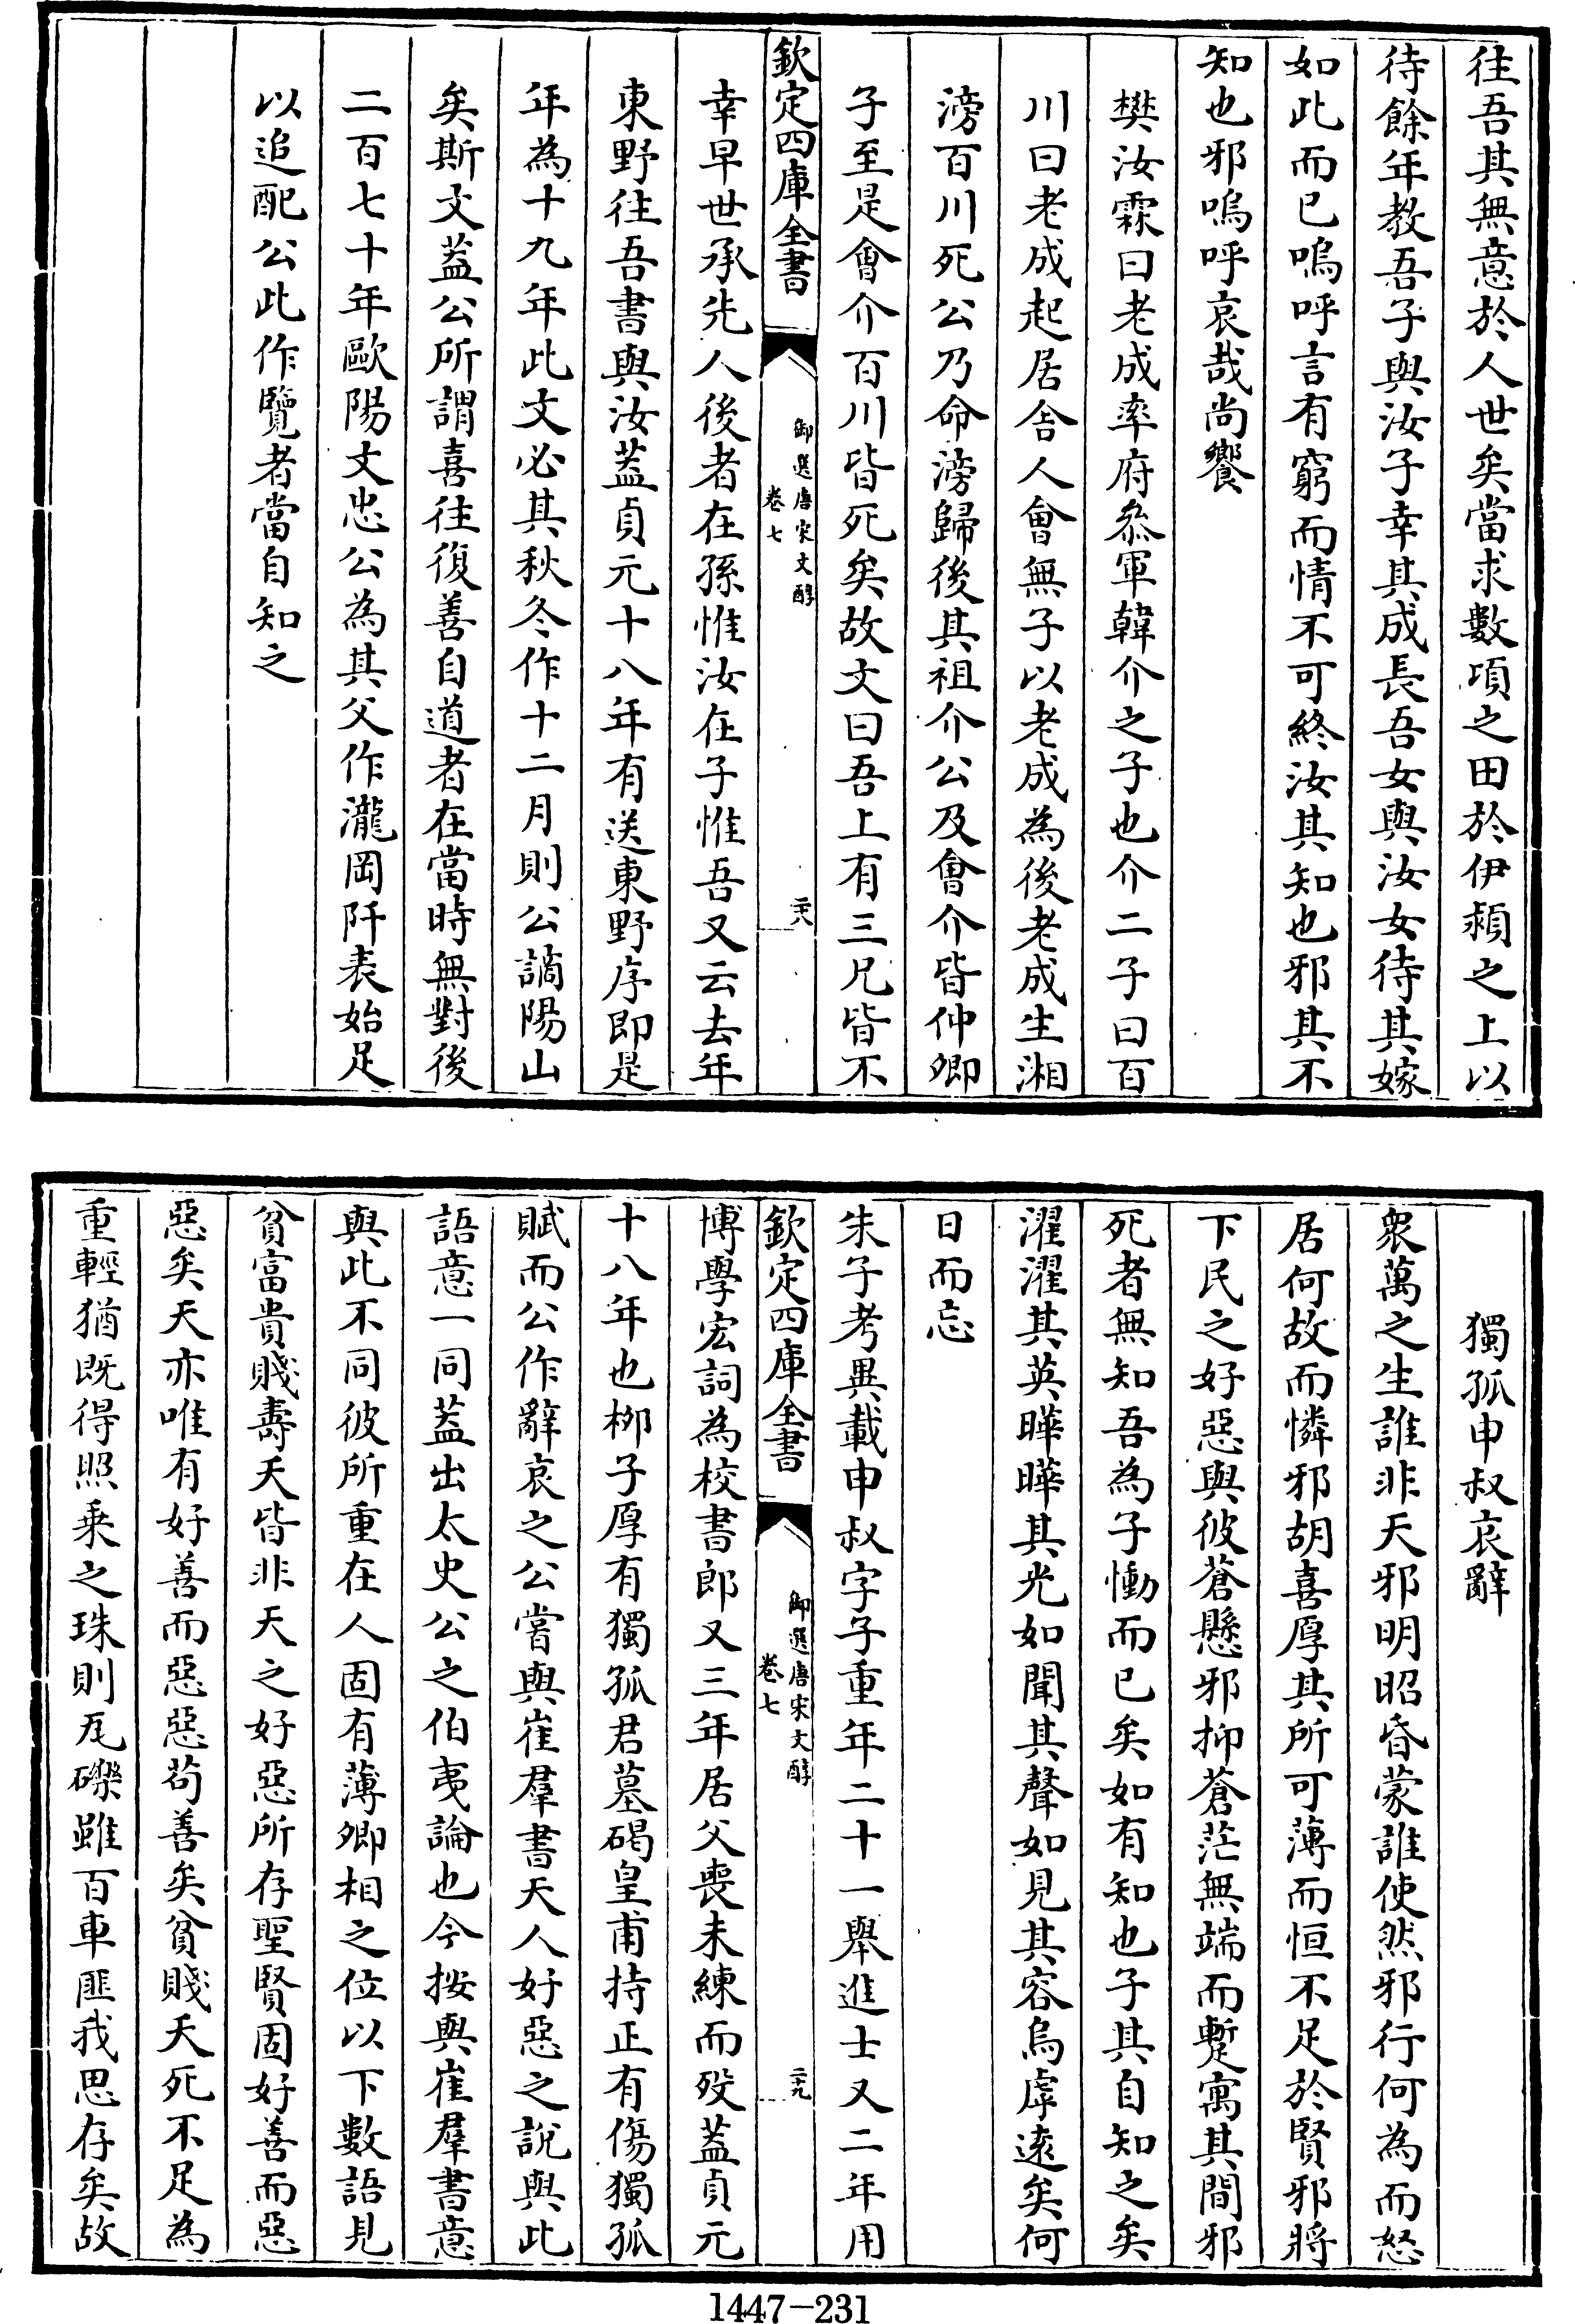 往吾其無意於人世矣當求數項之田於伊潁之上以
待餘年教吾子與汝子幸其成長吾女與汝女待其嫁
如此而已嗚呼言有窮而情不可終汝其知也邪其不
知也邪嗚呼哀哉尚饗
樊汝霖曰老成率府叅軍韓介之子也介二子曰百
川曰老成起居舍人會無子以老成為後老成生湘
滂百川死公乃命滂歸後其祖介公及會介皆仲卿
子至是會介百川皆死矣故文曰吾上有三兄皆不
欽定四庫全書
御選唐宋文醇
卷七
二十八
幸早世承先人後者在孫惟汝在子惟吾又云去年
東野往吾書與汝葢貞元十八年有送東野序即是
年為十九年此文必其秋冬作十二月則公謫陽山
矣斯文葢公所謂喜往復善自道者在當時無對後
二百七十年歐陽文忠公為其父作瀧岡阡表始足
以追配公此作覽者當自知之
獨孤申叔哀辭
衆萬之生誰非天邪明昭昏蒙誰使然邪行何為而怒
居何故而憐邪胡喜厚其所可薄而恒不足於賢邪將
下民之好惡與彼蒼懸邪抑蒼茫無端而蹔寓其間邪
死者無知吾為子慟而已矣如有知也子其自知之矣
濯濯其英曄曄其光如聞其聲如見其容烏虖逺矣何
日而忘
朱子考異載申叔字子重年二十一舉進士又二年用
欽定四庫全書
御選唐宋文醇
卷七
二十九
博學宏詞為校書郎又三年居父喪未練而歿葢貞元
十八年也栁子厚有獨孤君墓碣皇甫持正有傷獨孤
賦而公作辭哀之公嘗與崔羣書天人好惡之說與此
語意一同葢出太史公之伯夷論也今按與崔羣書意
與此不同彼所重在人固有薄卿相之位以下數語見
貧富貴賤壽夭皆非天之好惡所存聖賢固好善而惡
惡矣天亦唯有好善而惡惡苟善矣貧賤夭死不足為
重輕猶既得照乗之珠則瓦礫雖百車匪我思存矣故
1447-231